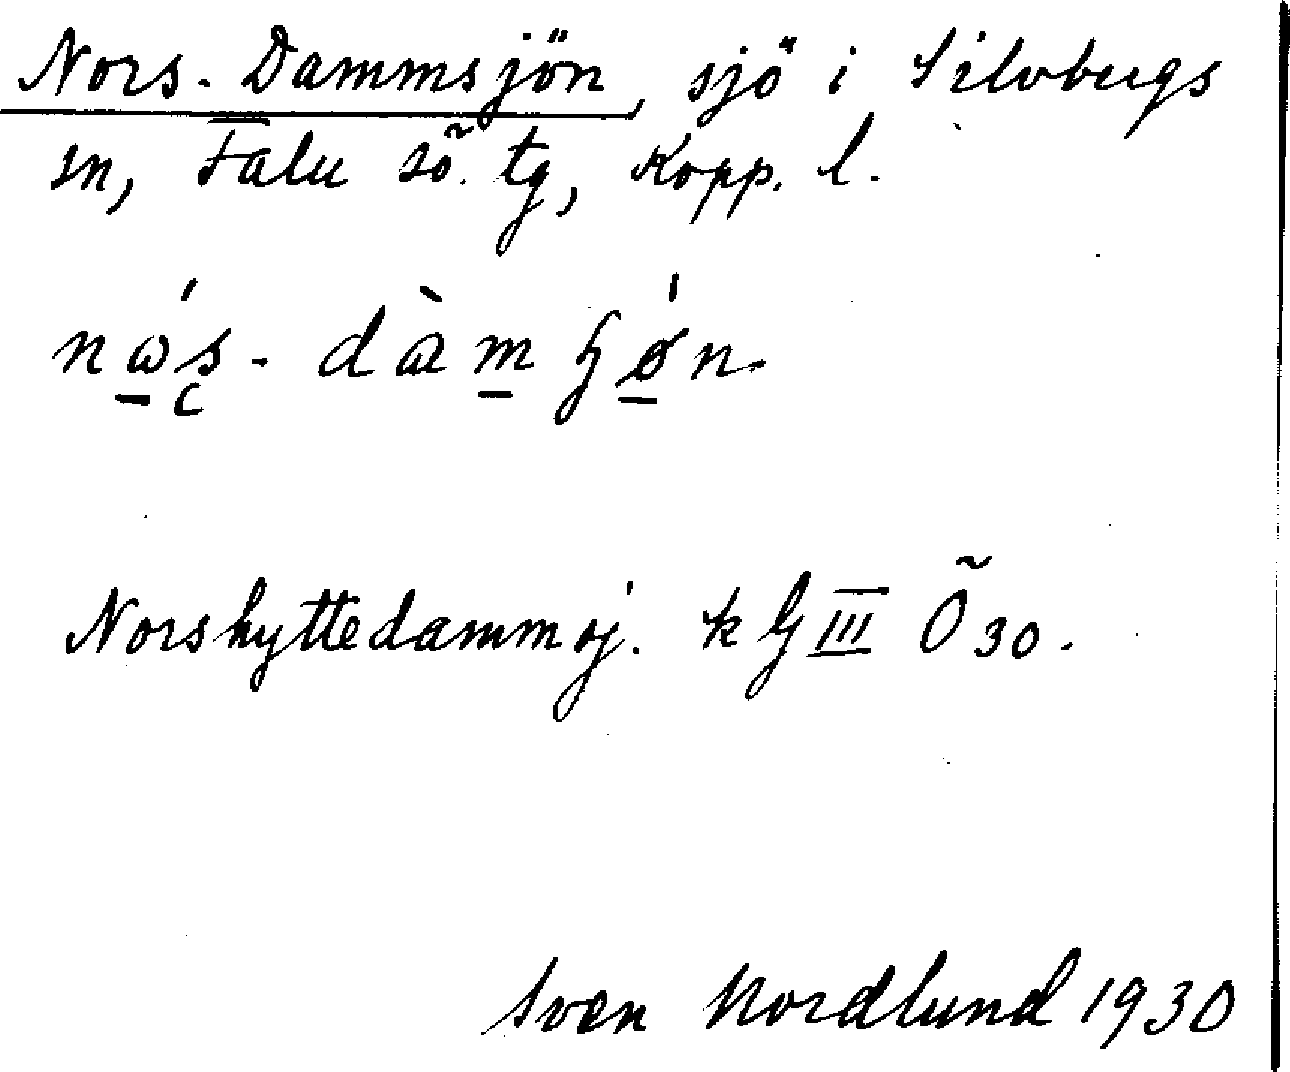 Nors-Dammsjön, sjö i Silvbergs
sn, Falu sö. tg, Kopp. l.
nώ̲ş-dàm̲ɧǿ̲n.
Norshyttedammsj. kG III Ö 30.
Sven Nordlund 1930